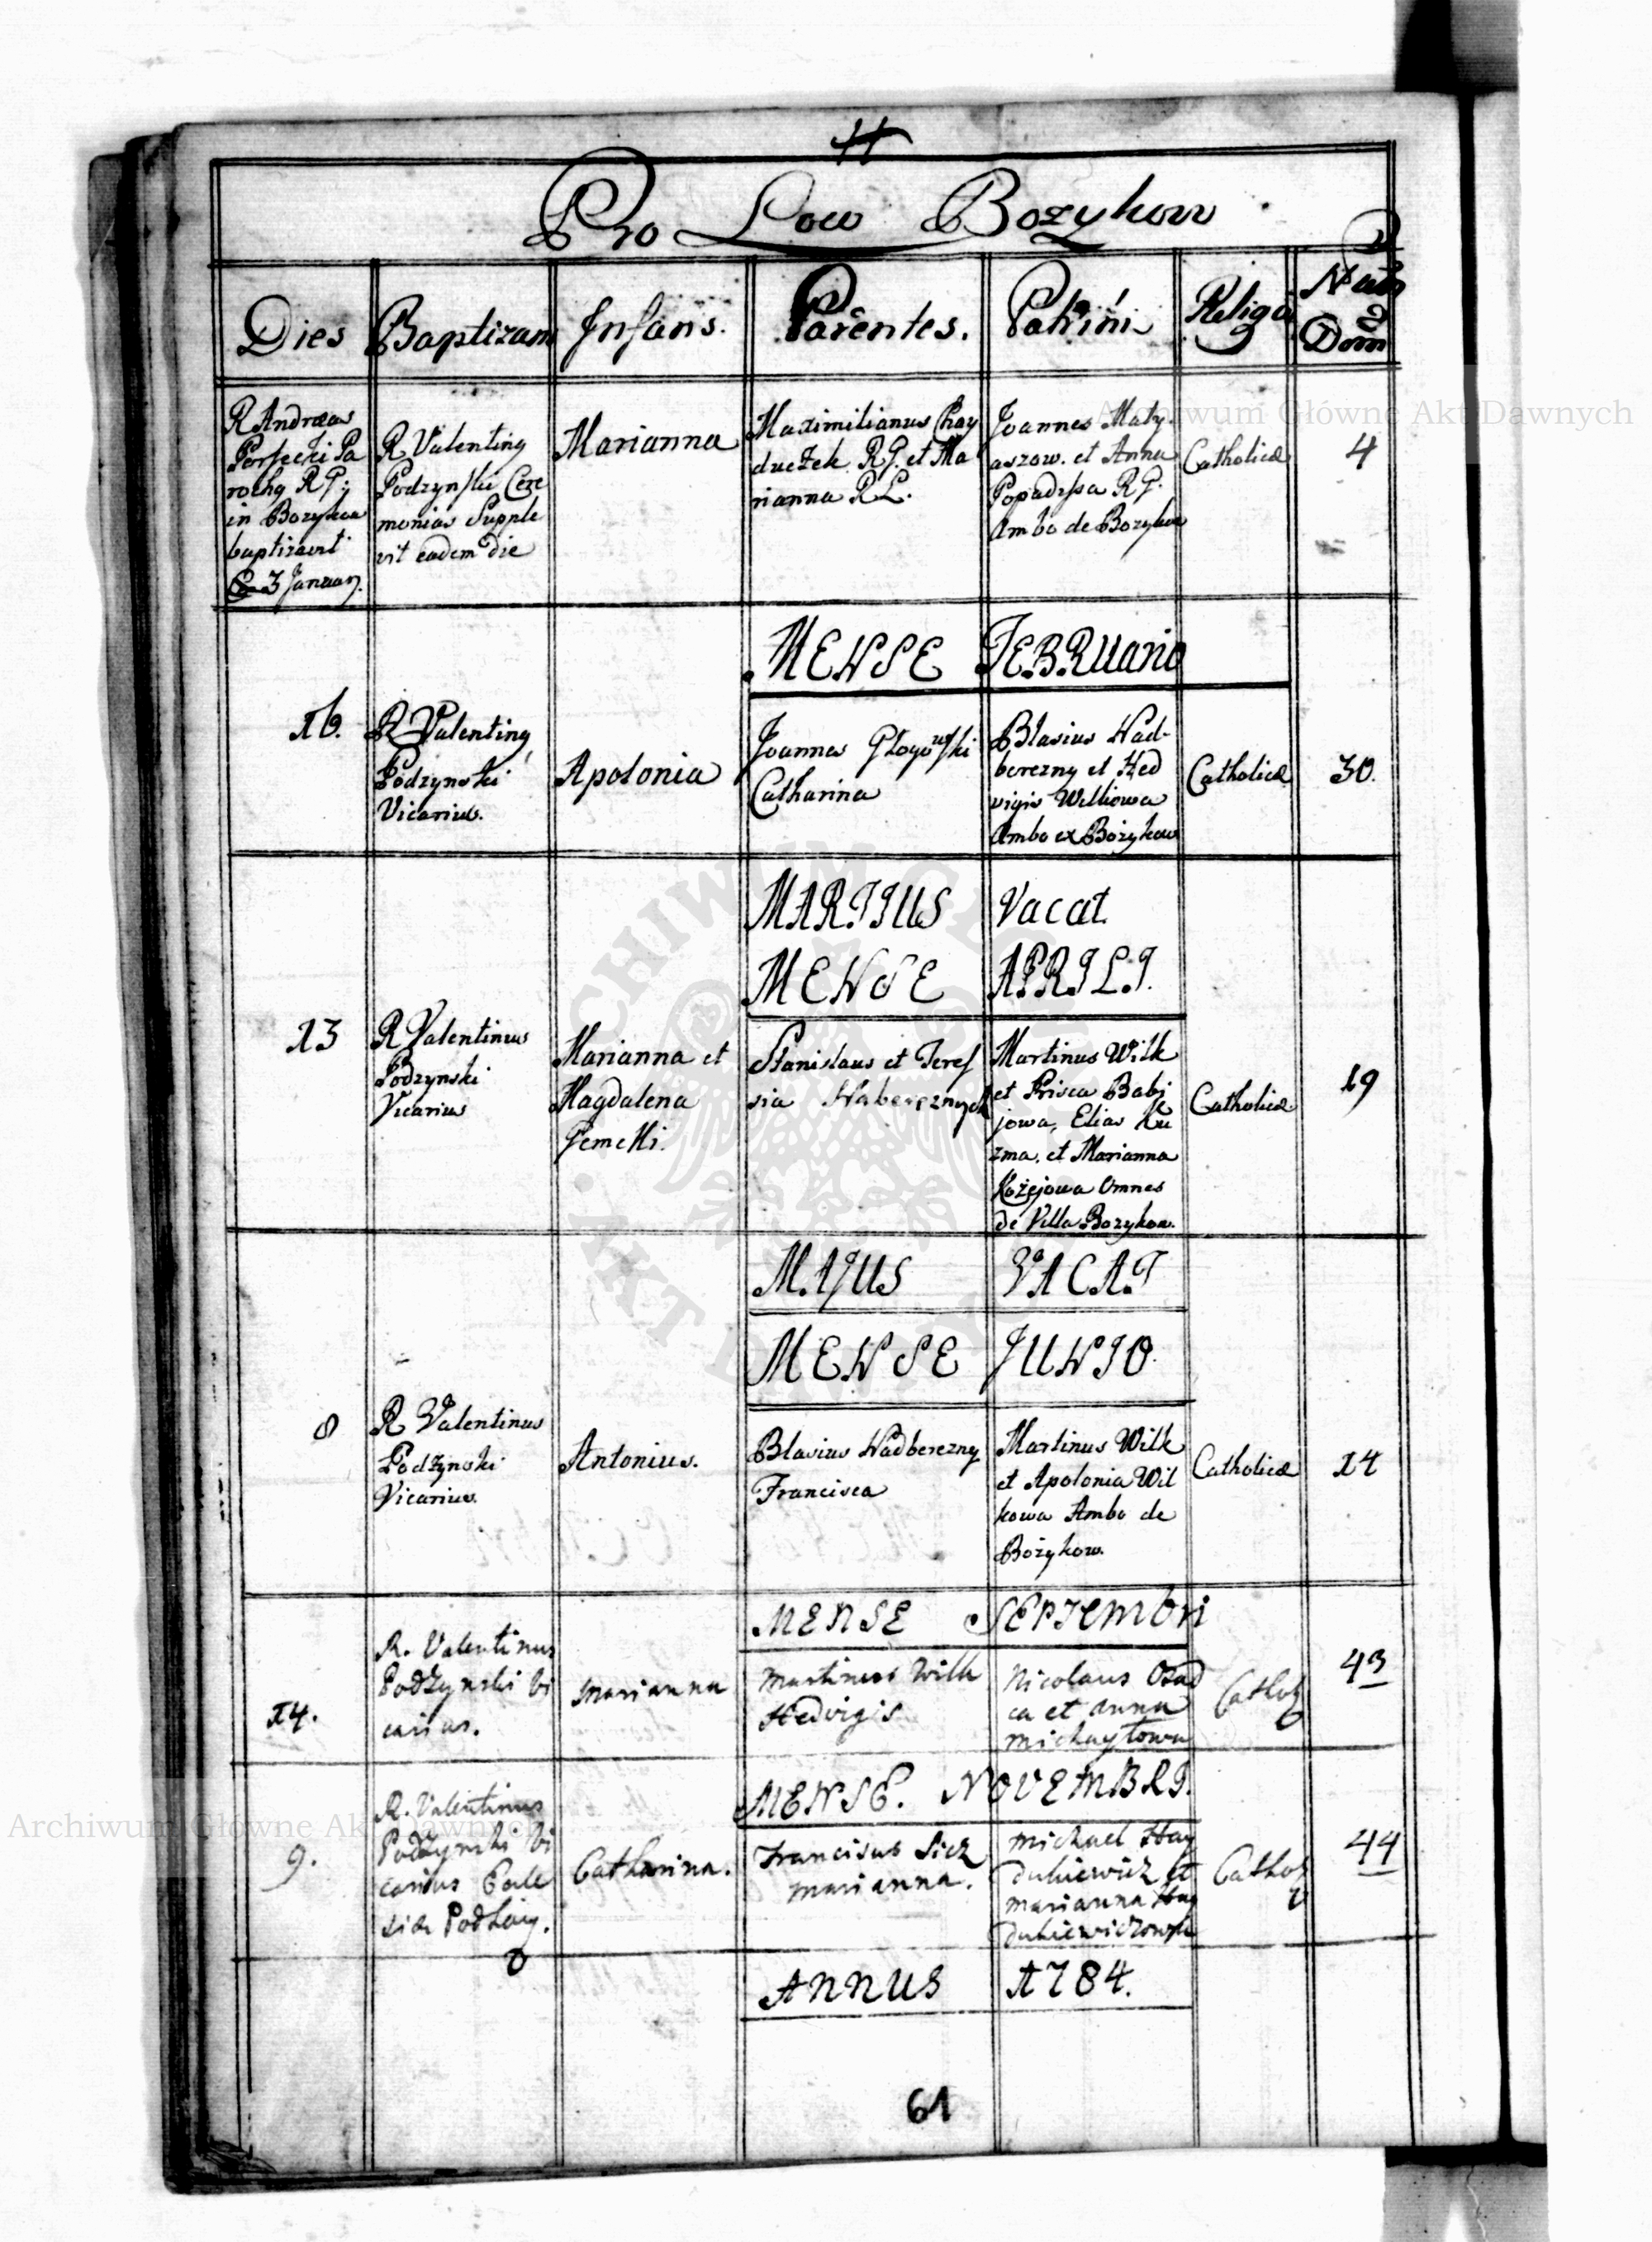 Pro Loco Bozykow
Dies
Baptizans
Infans.
Parentes.
Patrini
Religio
Dom
R Andreas
rochq RG;
in Bozykow
3 Januarij.
R Valentinq
Podzynski Cere
monias Supple
vit eadem die
Marianna
Maximilianus Chay
duczek RG. et Ma
rianna RL.
Joannes Maty
aszow. et Anna
RG.
Ambo de Bozykow
Catholicæ
4
MENSE FEBRUARIO
16.
R Valentinq
Podzynski
Vicarius.
Apolonia
Joannes Głogowski
Catharina
Blasius Nad-
berezny et Hed
vigis
Ambo ex Bożykow
Catholicæ
30.
MARTIUS Vacat.
MENSE APRILI.
13
R Valentinus
Podzynski
Vicarius
Marianna et
Magdalena
Gemelli.
Stanislaus et Teres
sia Nadbereznych
Martinus Wilk
et Prisca Babi
jowa, Elias Ku
zma, et Marianna
Kożejowa Omnes
de Villa Bozykow.
Catholicæ
19
MAJUS VACAT
MENSE JUNIO.
8
R Valentinus
Podzynski
Vicarius.
Antonius.
Blasius Nadberezny
Francisca
Martinus Wilk
et Apolonia Wil
kowa Ambo de
Bożykow.
Catholicæ
14
MENSE SEPTEMBRI
14.
R. Valentinus
Podzynski Vi
carius.
Marianna
Martinus Wilk
Hedvigis
Nicolaus Osad
ca et Anna
Michayłowa
Cathol
43
MENSE. NOVEMBRI.
9.
R. Valentinus
Podzynski Vi
carius Eccle
siæ Podhaj.
Catharina.
Franciscus Sicz
Marianna.
Michael Hay
dukiewicz et
Marianna Hay
dukiewiczowna
Cathol
44
ANNUS 1784.
61
Archiwum Główne Akt Dawnych
Archiwum Główne Akt Dawnych